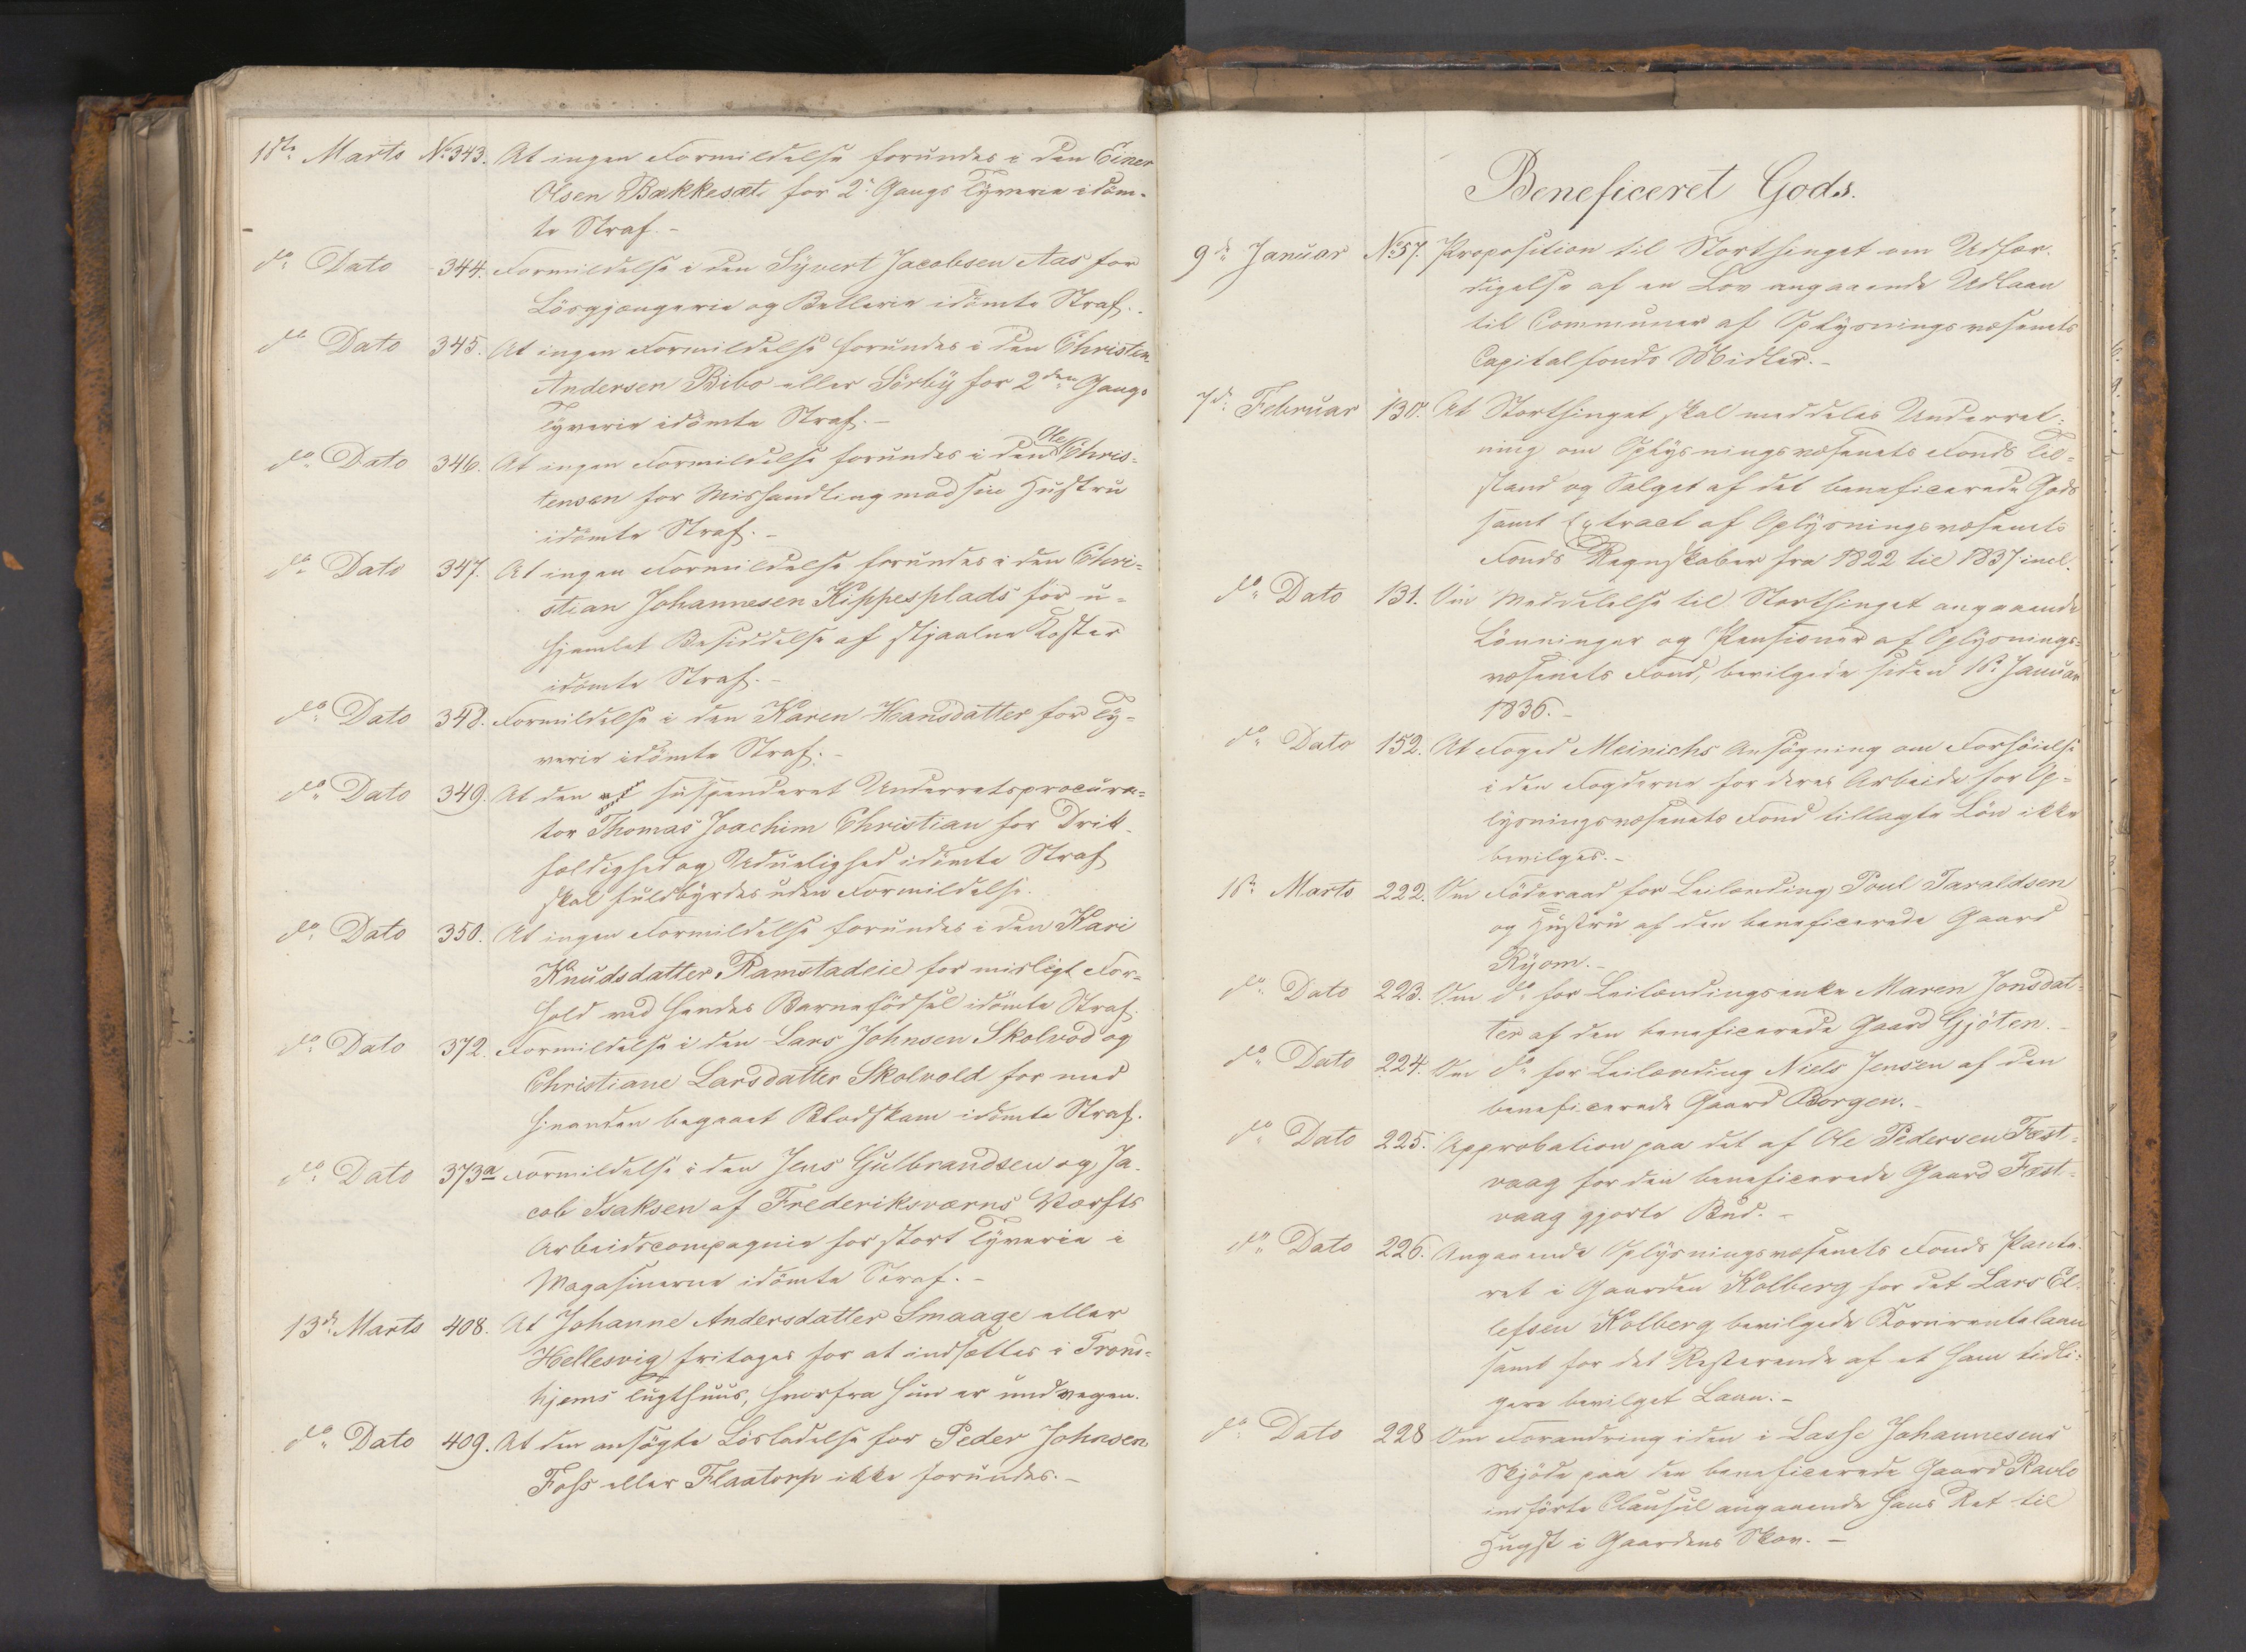 1ste Marts No 343. At ingen Formildelse forundes i den Einer
Olsen Bækkesæt for 2. Gangs Tyverie idöm-
te Straf. -
do Dato 344. Formildelse i den Syvert Jacobsen Aas for
Lösgjængerie og Betlerie idömte Straf. -
do Dato 345. At ingen Formildelse forundes i den Christen
Andersen Bibo eller Sörby for 2den Gangs
Tyverie idömte Straf. -
do Dato 346. At ingen Formildelse forundes i den Ole Chris-
tensen for Mishandling mod sin Hustru
idömte Straf. -
do Dato 347. At ingen Formildelse forundes i den Chri-
stian Johannesen Kippesplads for u-
hjemlet Besiddelse af stjaalne Koster
idömte Straf. -
do Dato 348. Formildelse i den Karen Hansdatter for Ty-
verie idömte Straf. -
do Dato 349. At den suspenderet Underretsprocura-
tor Thomas Joachim Christian for Drik-
fældighed og Uduelighed idömte Straf
skal fuldbyrdes uden Formildelse.
do Dato 350. At ingen Formildelse forundes i den Kari
Knudsdatter Ramstadeie for misligt For-
hold ved hendes Barnefödsel idömte Straf.
do Dato 372. Formildelse i den Lars Johnsen Skolvod og
Christiane Larsdatter Skolvold for med
hinanden begaaet Blodskam idömte Straf.
do Dato 373a Formildelse i den Jens Gulbrandsen og Ja-
cob Isaksen af Frederiksværns Værfts
Arbeidscompagnie for stort Tyverie i
Magasinerne idömte Straf. -
13de Marts 408. At Johanne Andersdatter Smaage eller
Hellesvig fritages for at indsættes i Trond-
hjems Tugthuus, hvorfra hun er undvegen.
do Dato 409. At den ansögte Lösladelse for Peder Johnsen
Foss eller Flaatorp ikke forundes. -
Beneficeret Gods.
9de Januar No 57. Proposition til Storthinget om Udfær-
digelse af en Lov angaaende Udlaan
til Communer af Oplysningsvæsenets
Capitalfonds Midler. -
7de Februar 130. At Storthinget skal meddeles Underret-
ning om Oplysningsvæsenets Fonds Til-
stand og Salget af det beneficerede Gods
samt Extract af Oplysningsvæsenets
Fonds Regnskaber fra 1822 til 1837 incl.
do Dato 131. Om Meddelelse til Storthinget angaaende
Lönninger og Pensioner af Oplysnings-
væsenets Fond, bevilgede siden 1ste Januar
1836. -
do Dato 152. At Foged Meinichs Ansögning om Forhöielse
i den Fogderne for deres Arbeide for Op-
lysningsvæsenets Fond tillagte Lön ikke
bevilges. -
1ste Marts 222. Om Föderaad for Leilænding Poul Taraldsen
og Hustru af den beneficerede Gaard
Ryom. -
do Dato 223. Om do for Leilændingsenke Maren Jonsdat-
ter af den beneficerede Gaard Gjöten. -
do Dato 224. Om do for Leilænding Niels Jensen af den
beneficerede Gaard Borgen. -
do Dato 225. Approbation paa det af Ole Pedersen Fæst-
vaag for den beneficerede Gaard Fæst-
vaag gjorte Bud. -
do Dato 226. Angaaende Oplysningsvæsenets Fonds Pante-
ret i Gaarden Kolberg for det Lars El-
lefsen Kolberg bevilgede Kornrentelaan
samt for det Resterende af et ham tidli-
gere bevilget Laan. -
do Dato 228 Om Forandring i den i Lasse Johannesens
Skjöde paa den beneficerede Gaard Ravlo
indförte Clausul angaaende hans Ret til
Hugst i Gaardens Skov. -